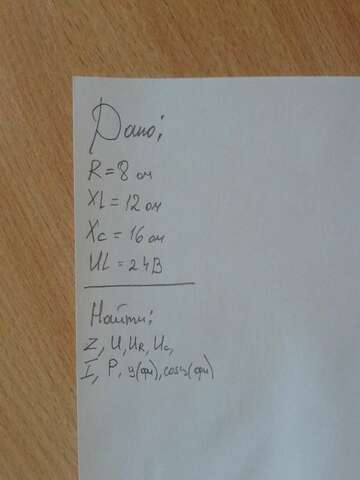 Дано:
R = 8 ом
XL = 12 ом
Xc = 16 ом
UL = 24В
Найти:
Z, U, UR, Uc,
I, P, φ(фи), cosφ(фи)